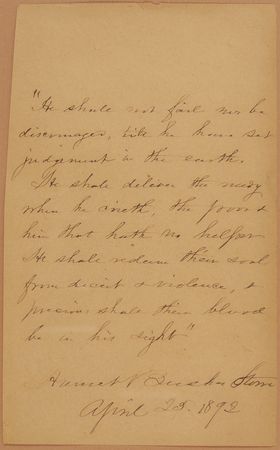 "He shall not fail nor be
discouraged, till he have set
judgement in the earth.
He shall deliver the needy
when he crieth, the poor &
him that hath no helper
He shall redeem their soul
from deceit & violence, &
precious shall their blood
be in his sight"
Harriet Beecher Stowe
April 23. 1892